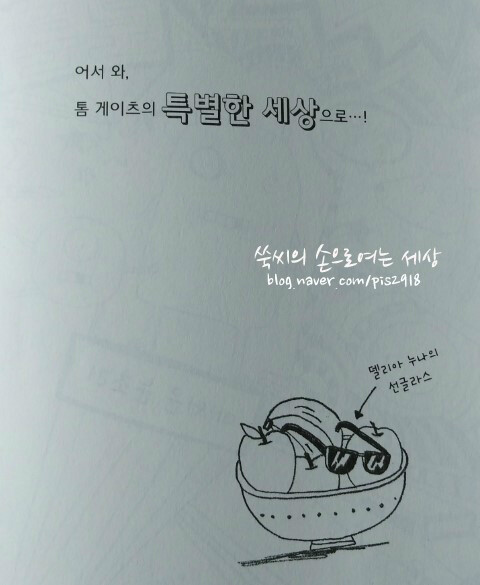 어서 와,
톰 게이츠의 특별한 세상으로…!
쑥씨의 손으로여는 세상
blog.naver.com/pis2918
델리아 누나의
선글라스